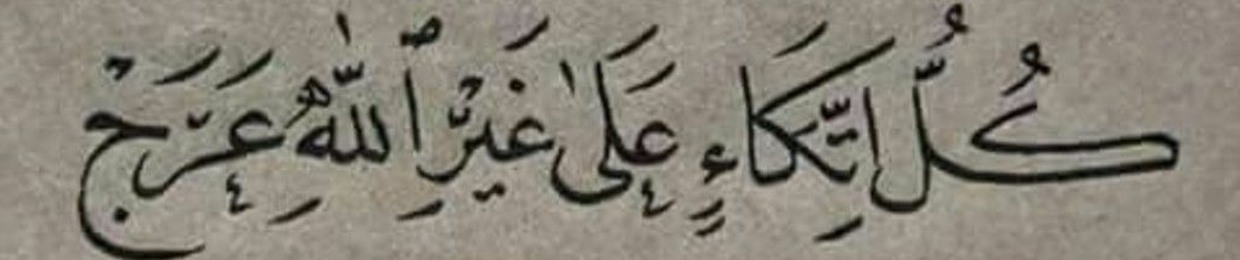 كُلُّ اتِّكَاءٍ عَلَىٰ غَيْرِ ٱللّٰهِ عَرَجْ